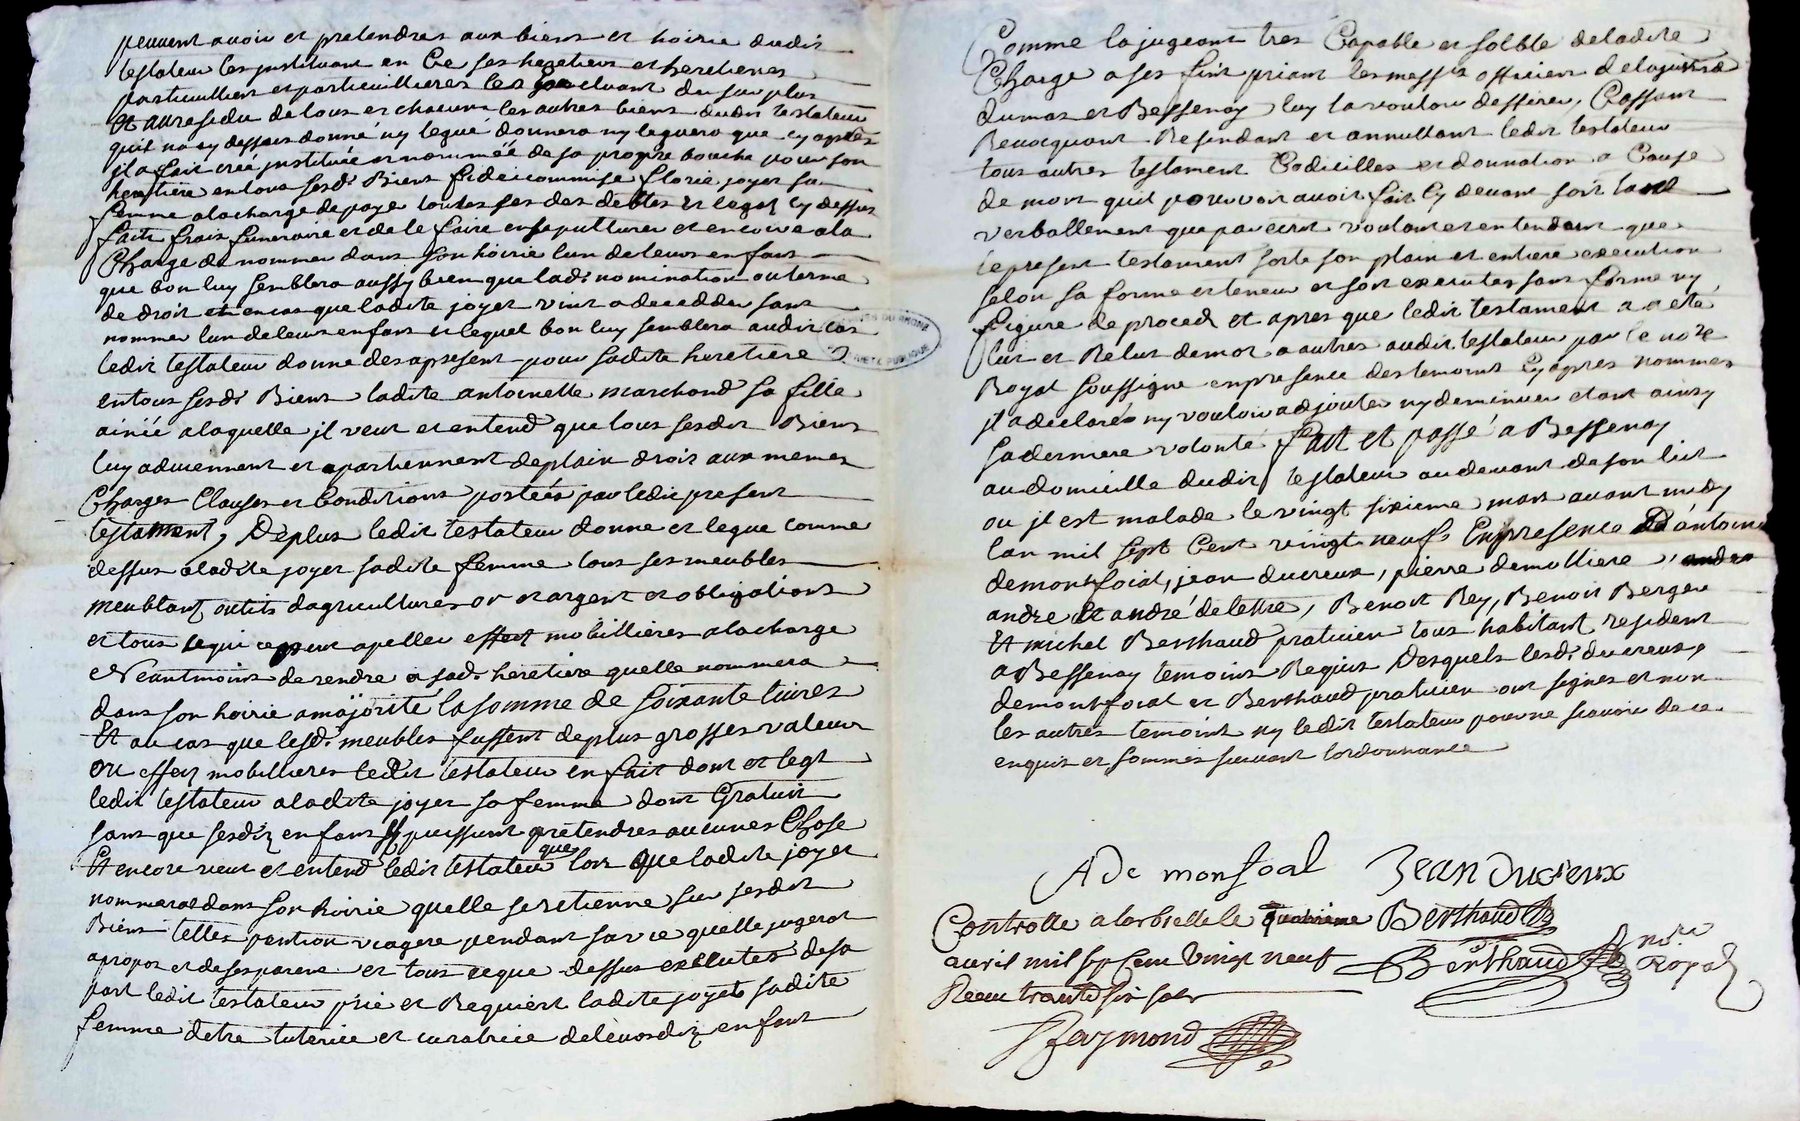 peuvent avoir et pretendres aux biens et hoirie dudit
testateur les justituant en Ce ses heretiers et heretieres
particulliers et particuillieres les Excluant du surplus
Et au residu de tous et chacuns les autres biens dudit testateur
quil na cy dessus donné ny legué donnera ny leguera que cy aprés
jl a fait créé justituée et nommée de sa propre bouche pour son
heretiere en tous sesd: Biens fideicommise florie joyet sa
femme a la charge de paye toutes ses des debtes et legat cy dessus
faits frais funeraire et de le faire ensepulturer et encore a la
Charge de nommer dans son hoirie lun de leurs enfans
que bon luy semblera aussy bien que lad: nomination ou terme
de droit et en cas que ladite joyet vint a decedder sans
nommer lun de leurs enfans et lequel bon luy semblera audit cas
ledit testateur donne des apresent pour sadite heretiere
en tous sesd: Biens ladite antoinette marchand sa fille
ainée a laquelle jl veut et entend que tous sesdit Biens
luy adviennent et apartiennent de plain droit aux memes
Charges Clauses et Conditions portées par ledit present
testament, De plus ledit testateur donne et legue comme
dessus a ladite joyet sadite femme tous ses meubles
meublant outils dagricultures or et argent et obligations
et tous ce qui ce peut apeller effect mobillieres a la charge
Neantmoins de rendre a sad: heretiere quelle nommera
dans son hoirie a majorité la somme de soixante livres
Et au cas que lesd: meubles fussent de plus grosses valeur
ou effect mobillieres ledit testateur en fait dont et legt
ledit testateur a ladite joyet sa femme dont Gratuit
sans que sesdit enfans puissent pretendres aucunes Chose
Et encore veut et entend ledit testateur que lors que ladite joyet
nommerat dans son hoirie quelle se retienne sur sesdit
Biens telles pention viagere pendant sa vie quelle jugerat
apropos et de ses parens et tous ce que dessus exécutés de sa
part ledit testateur prie et Requiert ladite joyet sadite
femme detre tuterice et curatrice de leursdit enfant
Comme la jugeant tres Capable et solble de ladite
Charge a ses fins priant les messrs officiers de la justice
dumas et Bessenay luy la vouloir defferer, Cassant
Revocquant Resindant et annullant ledit testateur
tous autres testament Codicilles et dounation a Cause
de mort quil pouvoit avoir fait cy devant soit tant
verballement que par écrit voulant et entendant que
le present testament sorte son plain et entiere execution
selon sa forme et teneur et soit executer sans forme ny
figure de proced et apres que ledit testament a eté
lut et Relut de mot a autres audit testateur par le nore
Royal soussigne en presence des temoins Cy apres nommés
jl a declarés ny vouloir adjouter ny deminuer etant ainsy
sa derniere volonté fait et passé a Bessenay
au domicille dudit testateur au devant de son lict
ou jl est malade le vingt sixieme mars avant midy
lan mil sept Cent vingt neufs En presence D'antoine
demontfocat, jean ducreux, pierre demolliere,
andre Et andré de lettre, Benoit Rey, Benoit Berger
Et michel Berthaud praticien tous habitant resident
a Bessenay temoins Requis Desquels lesd: ducreux,
demontfocat et Berthaud praticien ont signes et non
les autres temoins ny ledit testateur pour ne scavoir de ce
enquis et sommés suivant lordonnance
A De monfocal Jean Ducreux
Controlle a larbrelle le quatrieme Berthaud
avril mil sept Cent vingt neuf Berthaud nore
Receu trante six sols Royal
Raymond